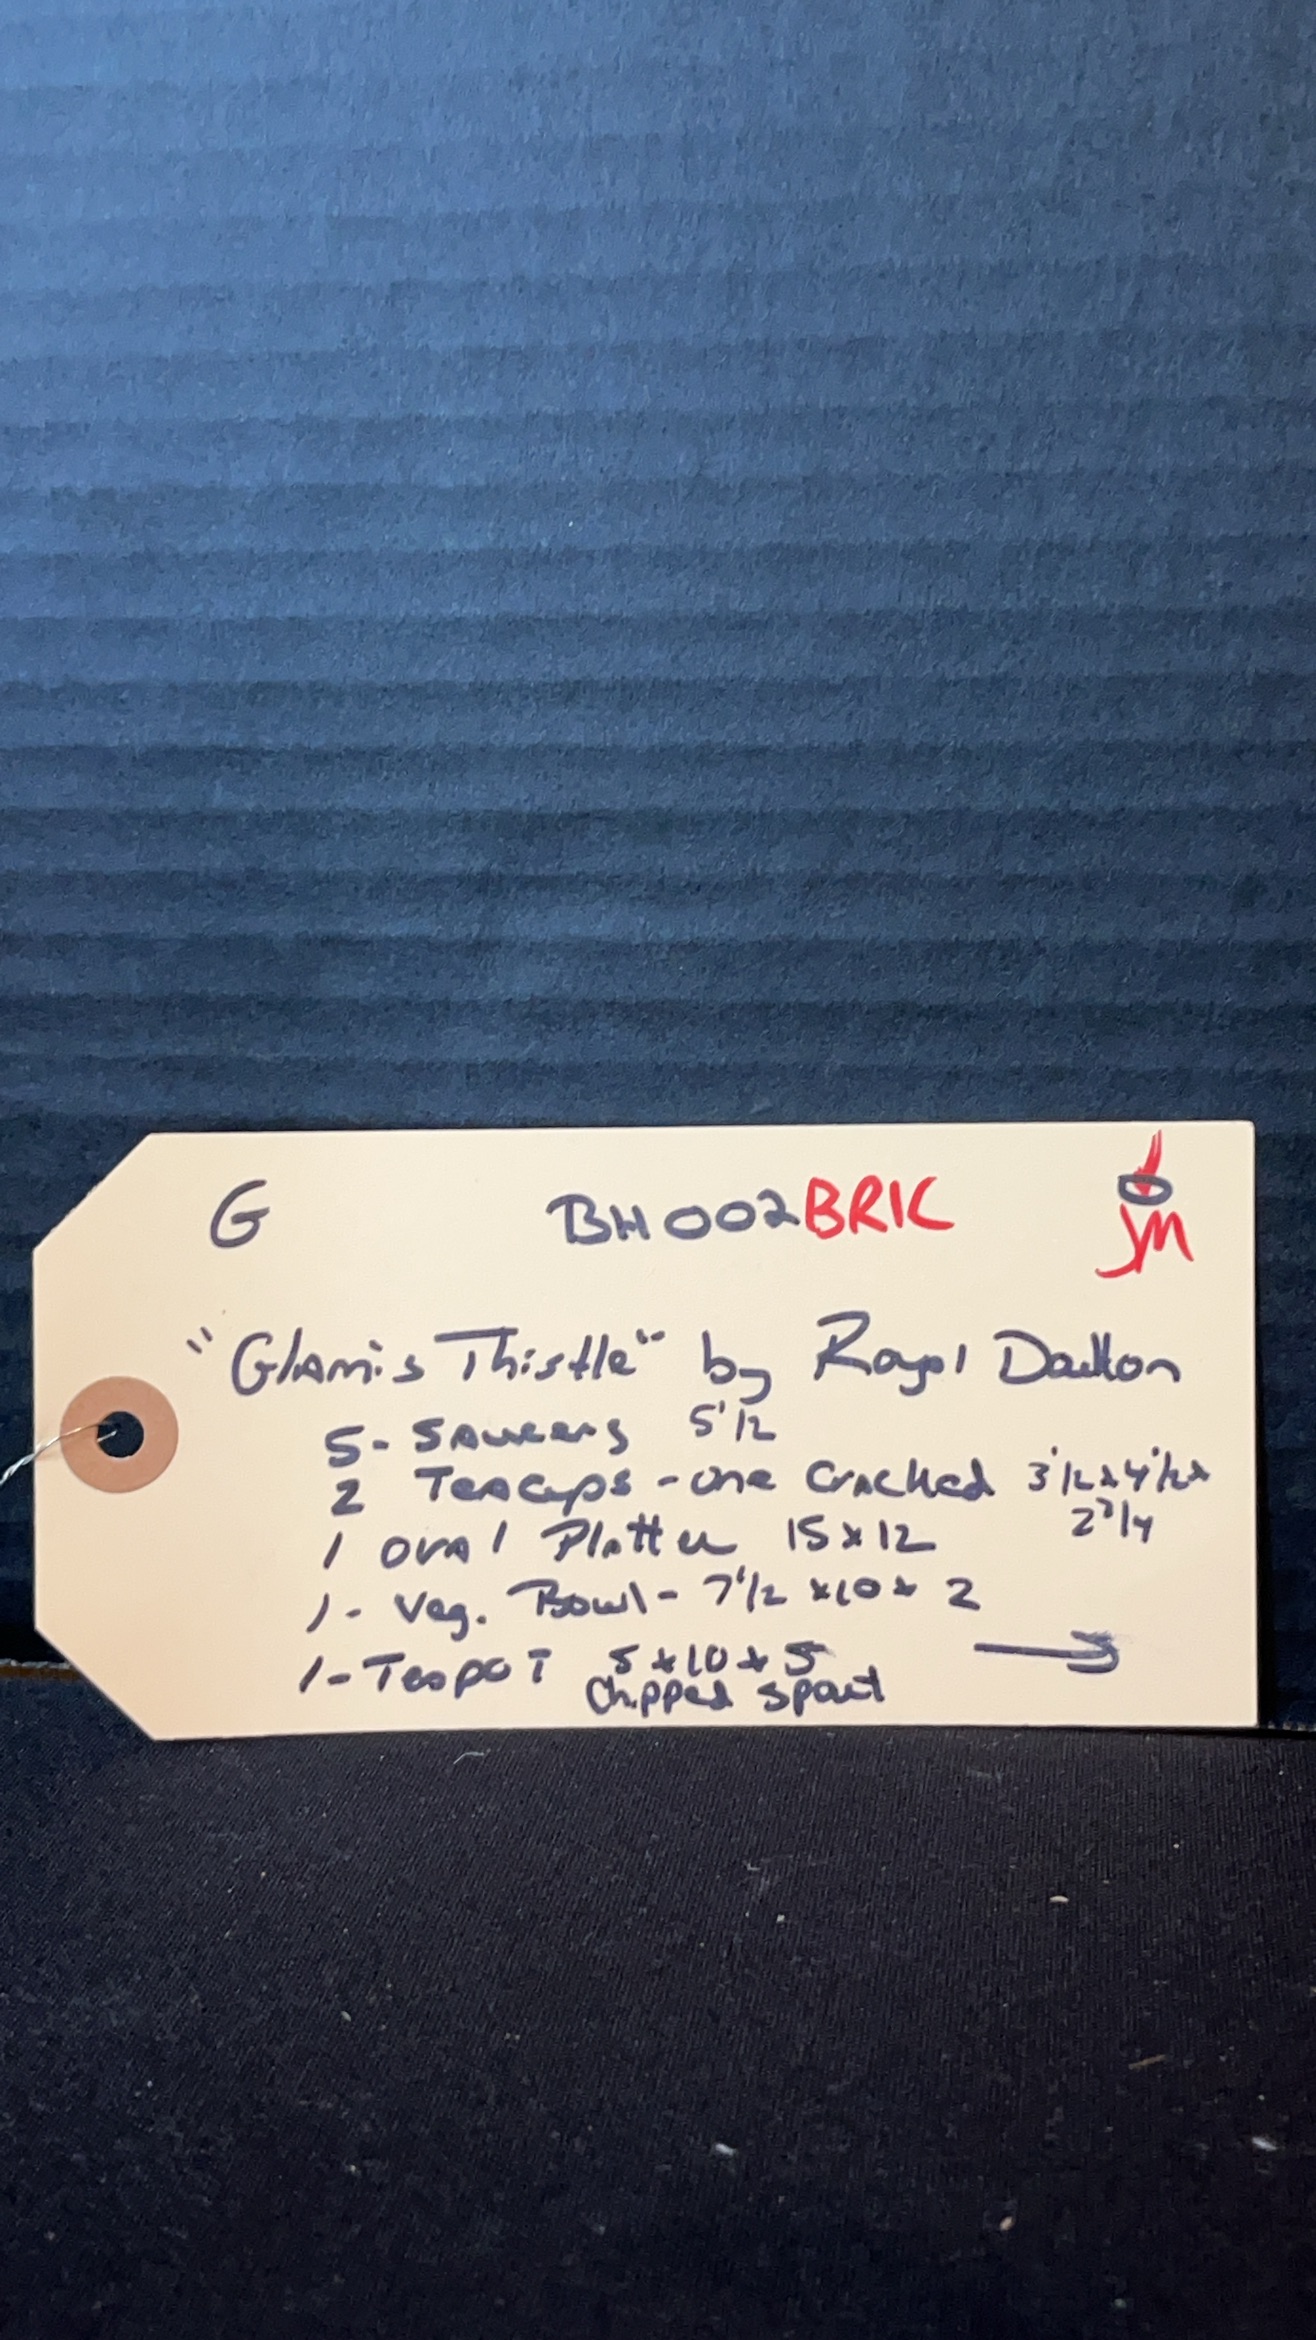 G BH002BRIC JM
"Glamis Thistle" by Royal Doulton
5- Saucers 5 1/2
2 Teacups - one Cracked 3 1/2 x 4 1/2 x
2 3/4
1 oval Platter 15 x 12
1- Veg. Bowl - 7 1/2 x 10 x 2
1- Teapot 5 x 10 x 5
Chipped spout